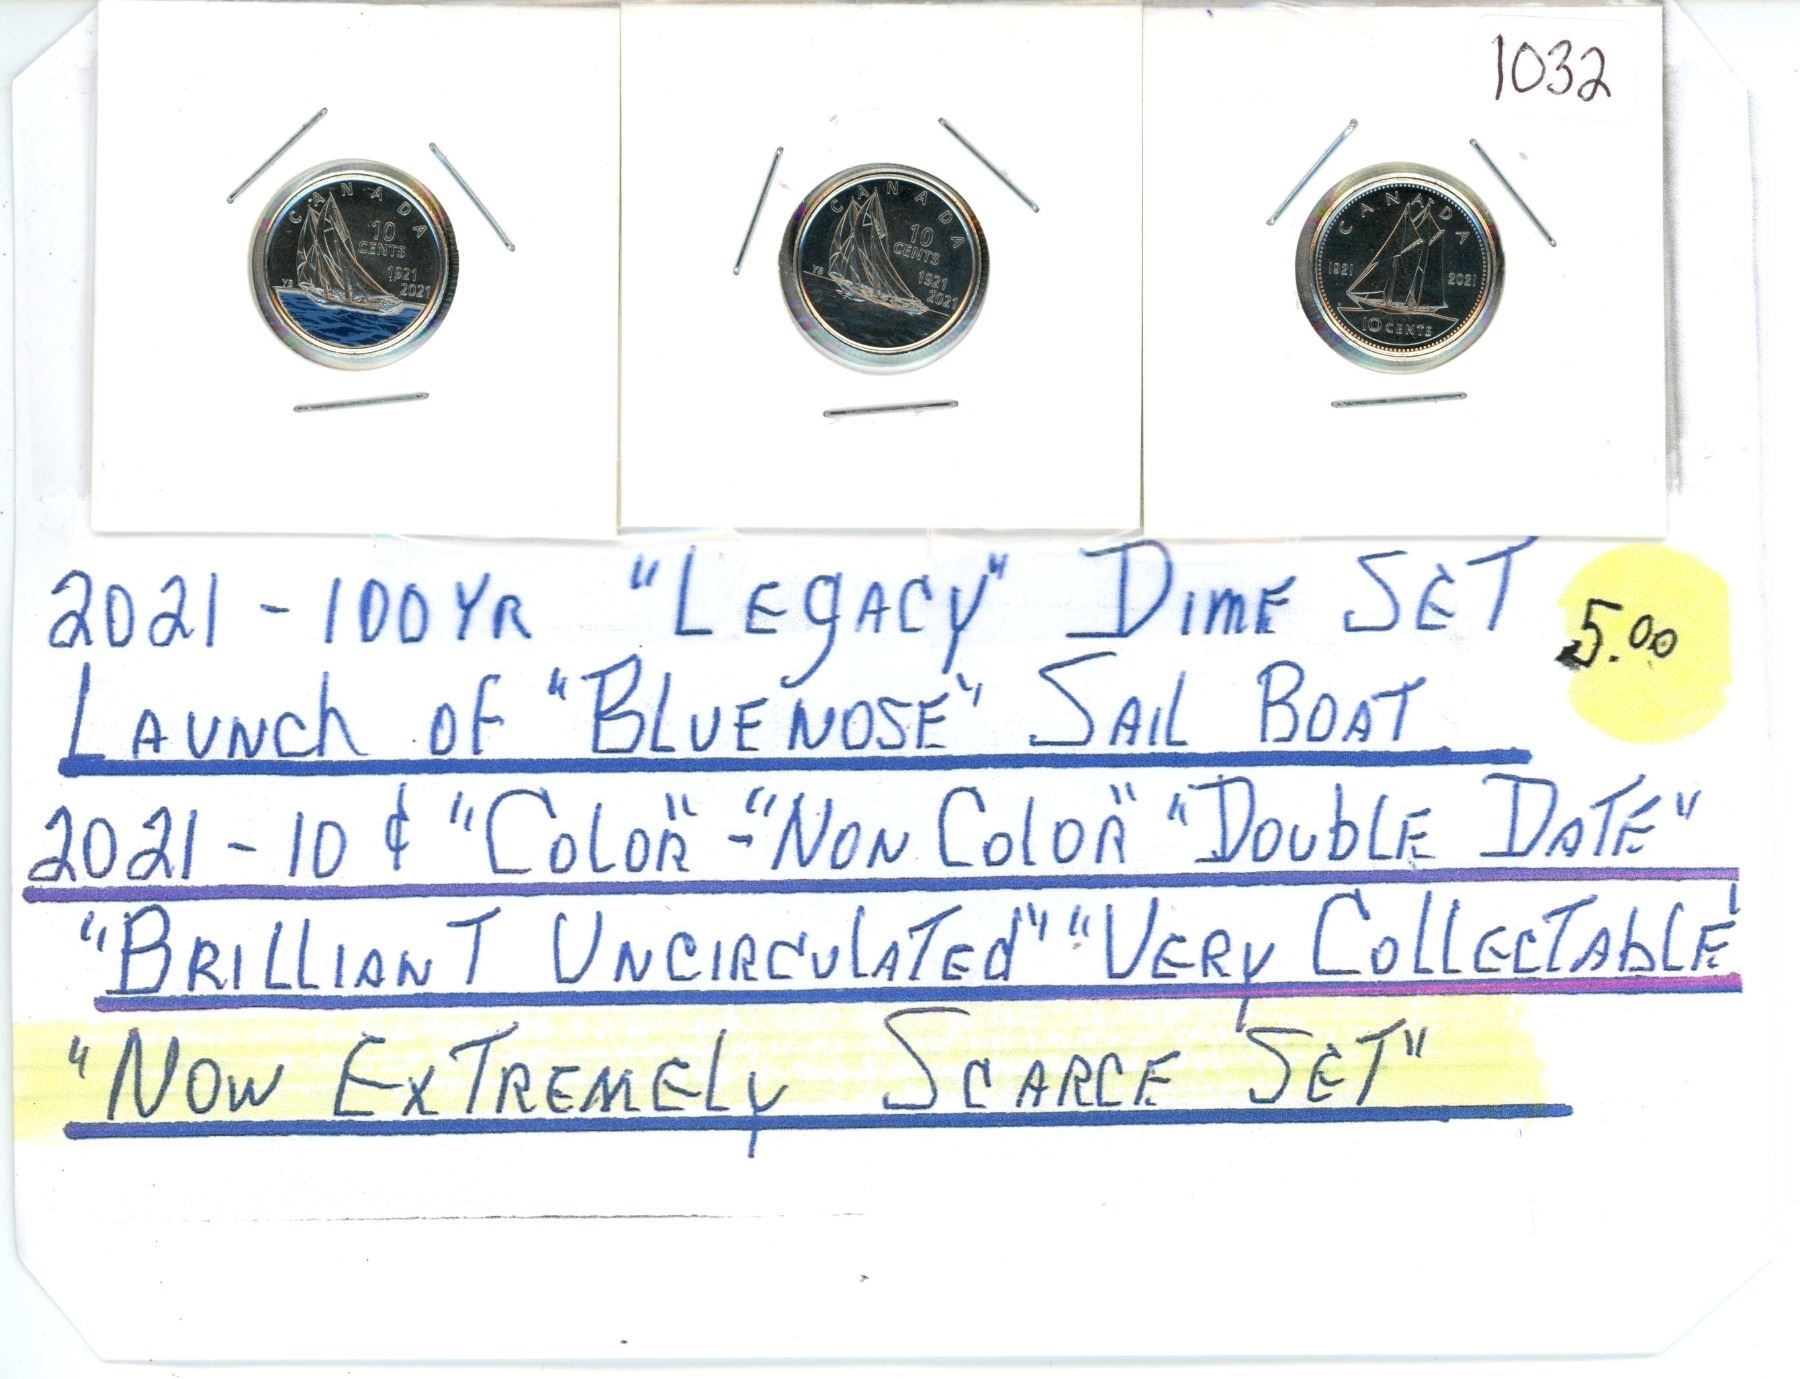 1032
CANADA
10
CENTS
1921
2021
YB
CANADA
10
CENTS
1921
2021
YB
CANADA
1921 2021
10 CENTS
2021 - 100 YR "LEGACY" DIME SET
5.00
LAUNCH OF "BLUENOSE" SAIL BOAT
2021 - 10 ¢ "COLOR" - "NON COLOR" "DOUBLE DATE"
"BRILLIANT UNCIRCULATED" "VERY COLLECTABLE"
"NOW EXTREMELY SCARCE SET"